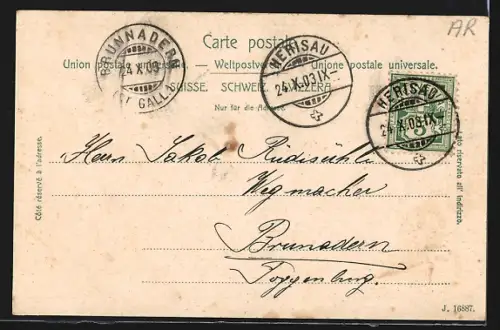 AR
Carte postale.
Union postale universelle. — Weltpostverein. — Unione postale universale.
SUISSE. SCHWEIZ. SVIZZERA.
Nur für die Adresse.
BRUNNADERN
24.X.03
(ST. GALLEN)
HERISAU
24.X.03.IX
HERISAU
24.X.03.IX
5
Côté réservé à l'adresse.
Lato riservato all' indirizzo.
Herrn Jakob Rüdisühli
Wegmacher
Brunadern
Toggenburg.
J. 16887.